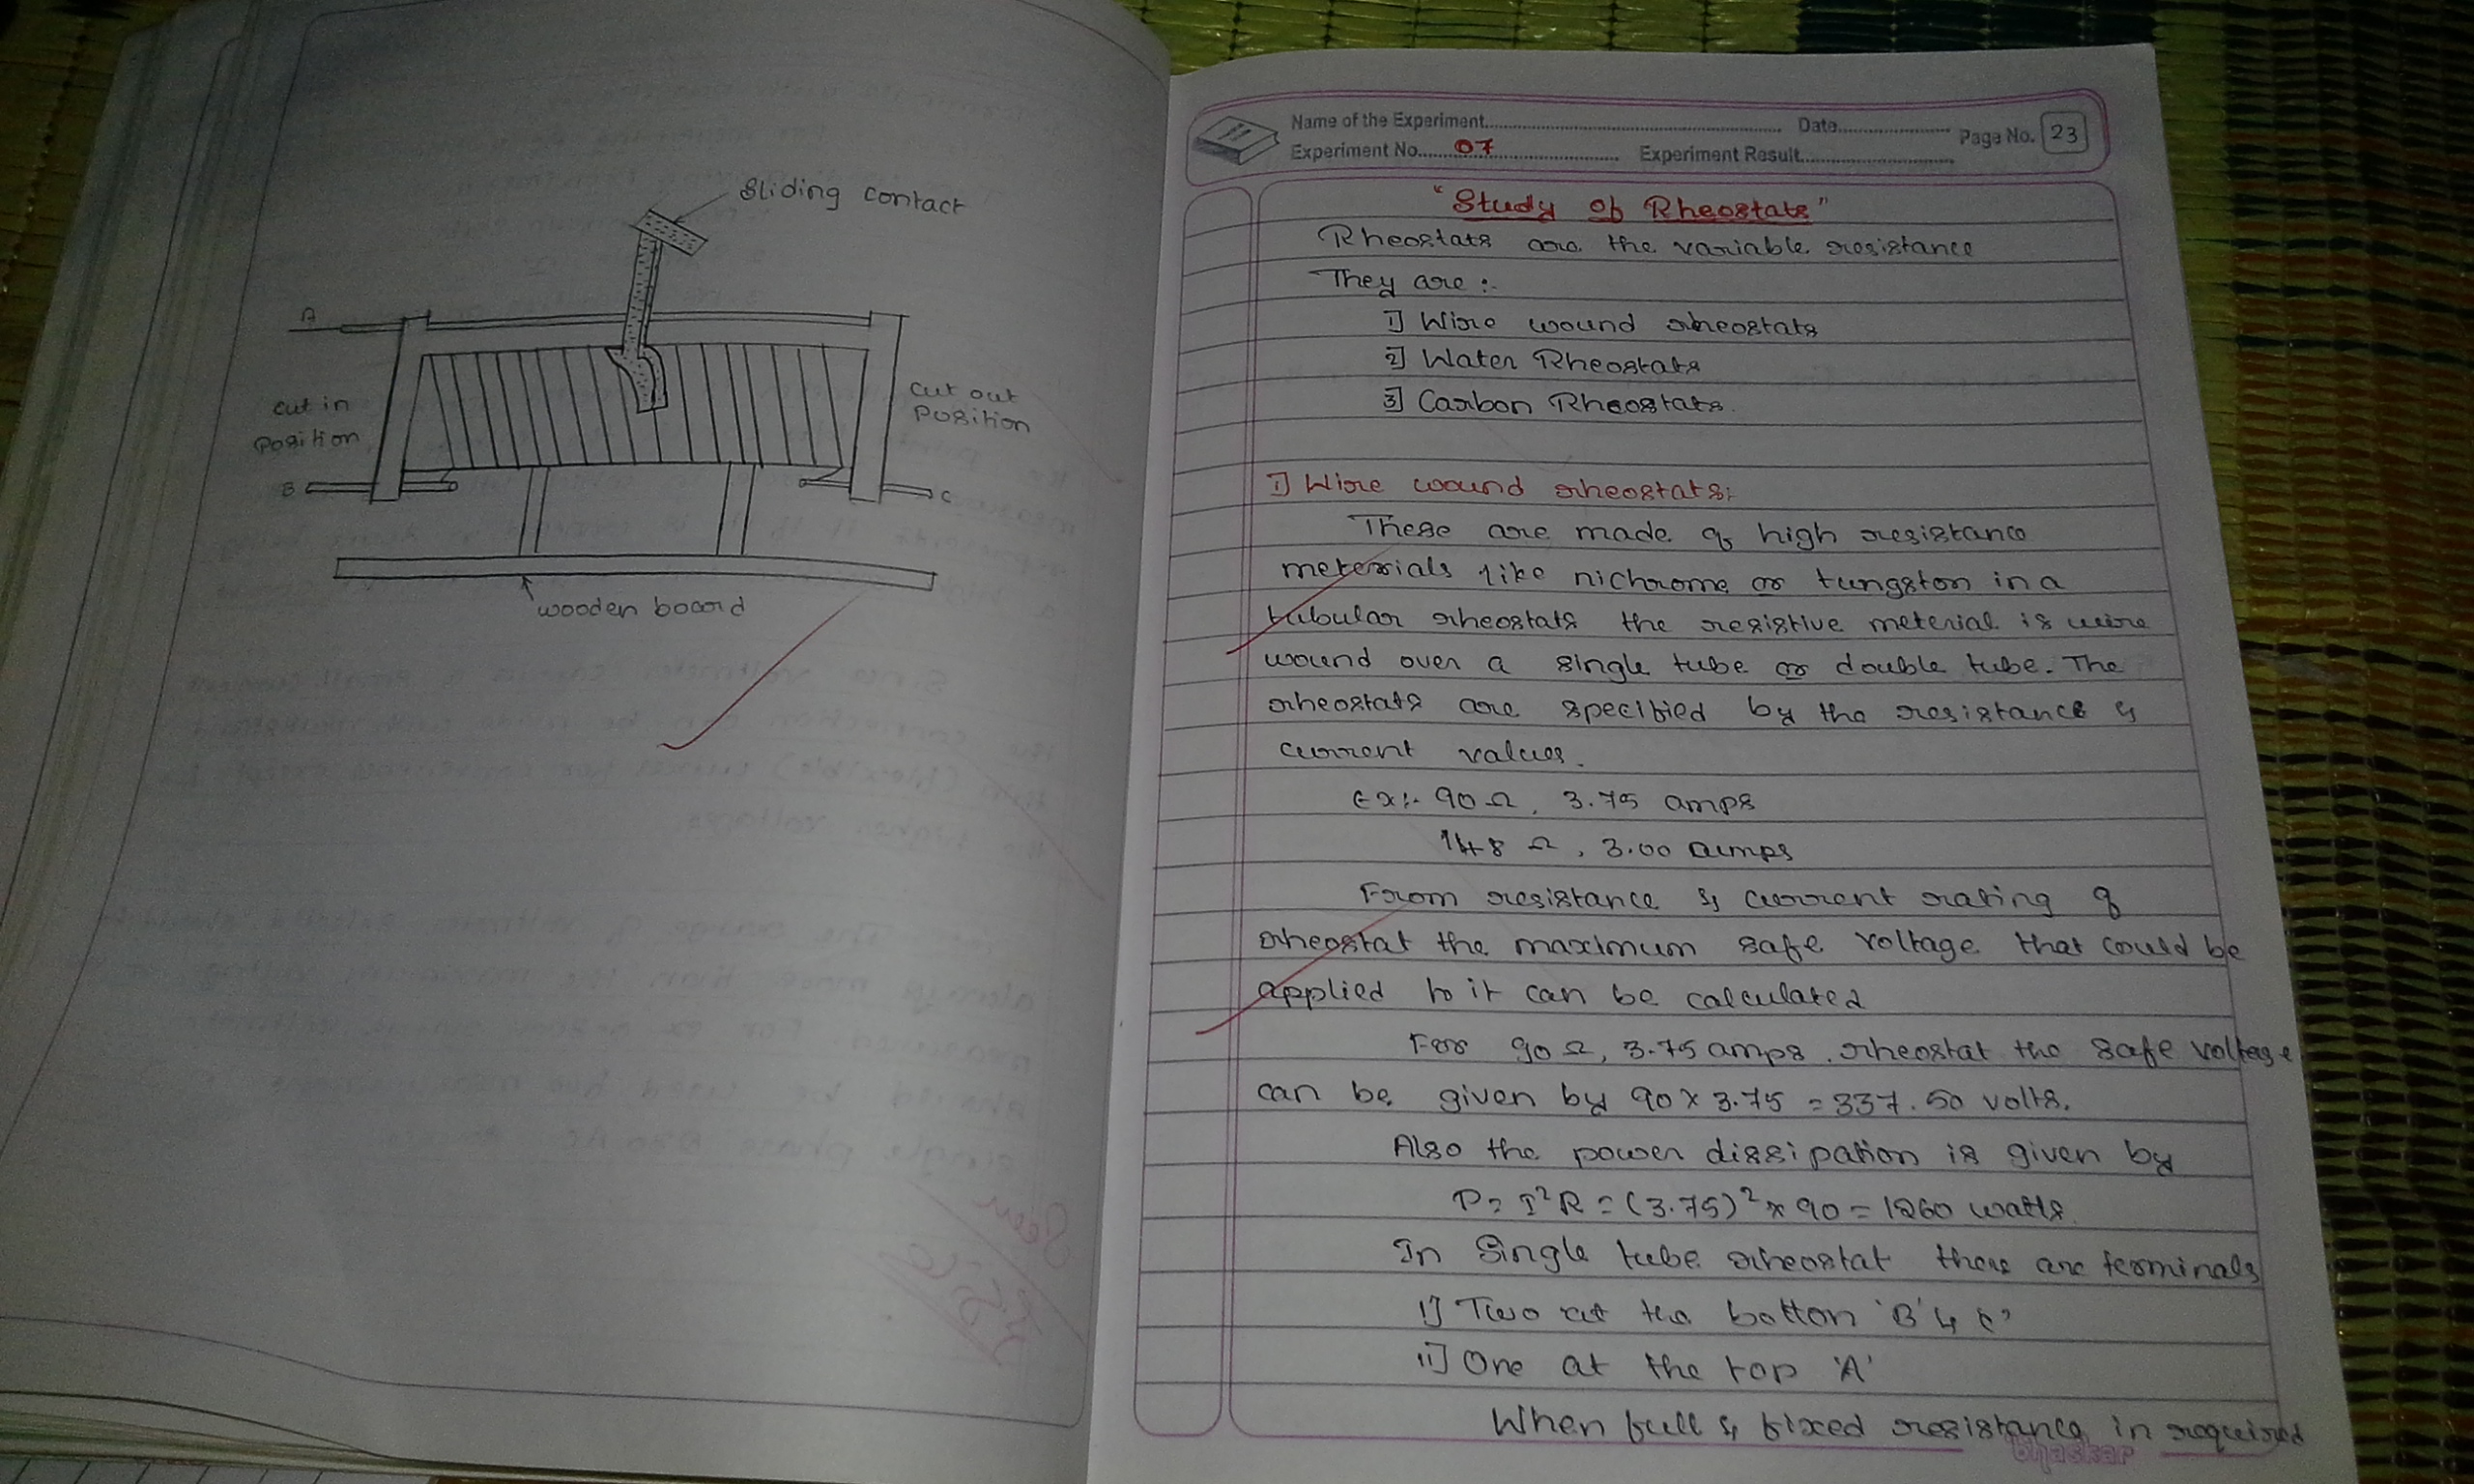 Sliding contact
A
cut in
Position
cut out
Position
B
C
wooden board
Name of the Experiment
Date
Page No. 23
Experiment No. 07
Experiment Result
"Study of Rheostats"
Rheostats are the variable resistance
They are :-
1] Wire wound rheostats
2] Water Rheostats
3] Carbon Rheostats.
1] Wire wound rheostats:
These are made of high resistance
meterials like nichrome or tungston in a
tubular rheostats the resistive meterial is wire
wound over a single tube or double tube. The
rheostats are specified by the resistance &
current values.
Ex:- 90 Ω, 3.75 amps
148 Ω, 3.00 amps
From resistance & current rating of
rheostat the maximum safe voltage that could be
applied to it can be calculated
For 90 Ω, 3.75 amps. rheostat the safe voltage
can be given by 90 x 3.75 = 337.50 volts.
Also the power dissipation is given by
P = I²R = (3.75)² x 90 = 1260 watts.
In Single tube rheostat there are terminals
i] Two at the botton 'B' & C'
ii] One at the top 'A'
When full & fixed resistance in required
bhaskar